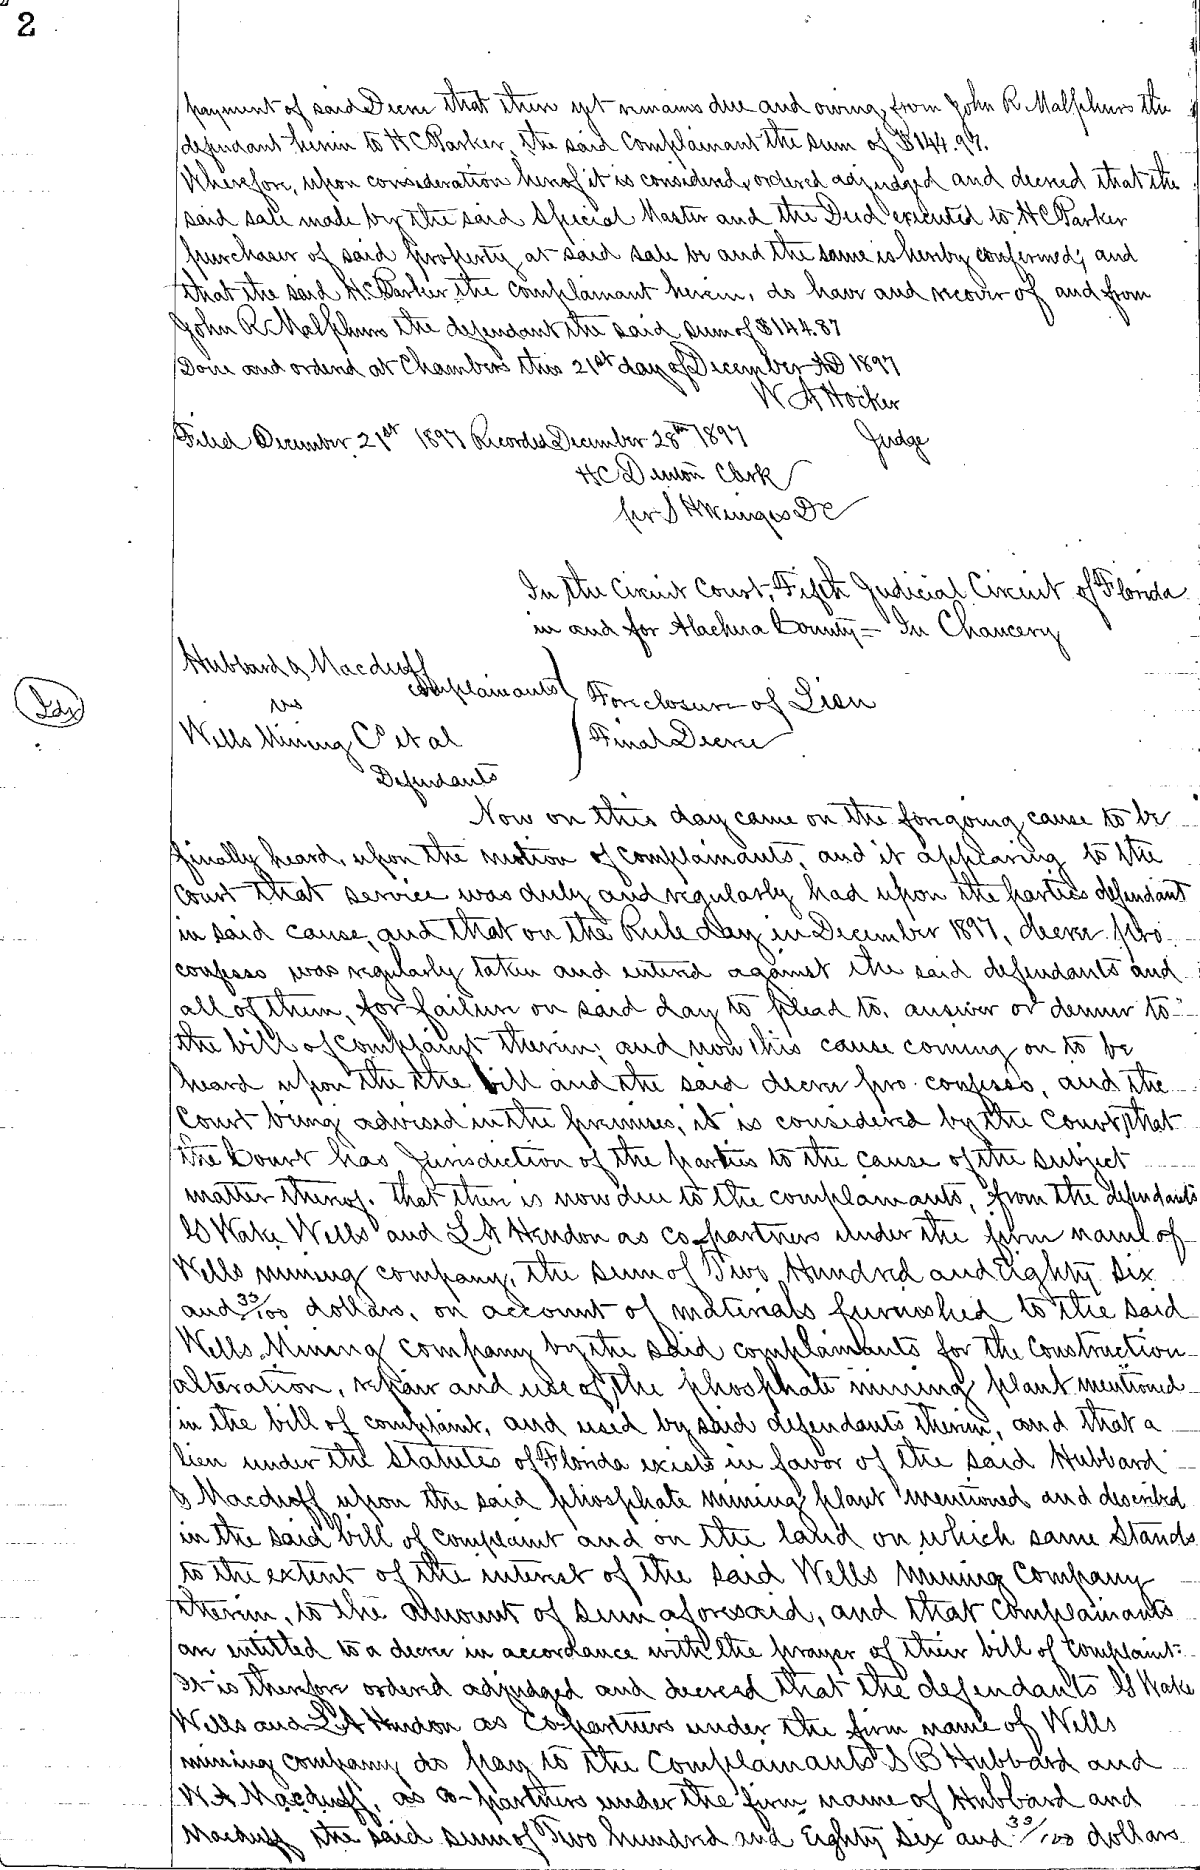 2
payment of said Decree that there yet remains due and owing from John R Malphurs the
defendant herein to H C Parker, the said Complainant the sum of $144.97.
Wherefore, upon consideration hereof it is considered, ordered adjudged and decreed that the
said sale made by the said Special Master and the Deed executed to H C Parker
purchaser of said property at said sale be and the same is hereby confirmed; and
that the said H.C. Parker the complainant herein, do have and recover of and from
John R Malphurs the defendant the said sum of $144.87
Done and ordered at Chambers this 21st day of December AD 1897
W A Hocker
Filed December 21st 1897 Recorded December 28th 1897 Judge
H C Denton Clerk
per S H Wienges DC
In the Circuit Court, Fifth Judicial Circuit of Florida
in and for Alachua County = In Chancery
Hubbard & Macduff
complainants
vs
Foreclosure of Lien
Idx
Wells Mining Co et al
Final Decree
Defendants
Now on this day came on the foregoing cause to be
finally heard, upon the motion of complainants, and it appearing to the
court that service was duly and regularly had upon the parties defendant
in said cause, and that on the Rule day in December 1897, decree pro
confesso was regularly taken and entered against the said defendants and
all of them, for failure on said day to plead to, answer or demur to
the bill of complaint therein; and now this cause coming on to be
heard upon the the bill and the said decree pro confesso, and the
Court being advised in the premises, it is considered by the Court, that
the Court has Jurisdiction of the parties to the cause of the subject
matter thereof. that there is now due to the complainants, from the defendants
Wake Wells and L A Hendon as co-partners under the firm name of
Wells mining company, the sum of Two Hundred and Eighty Six
and 33/100 dollars, on account of materials furnished to the said
Wells Mining company by the said complainants for the Construction
alteration, repair and use of the phosphate mining plant mentioned
in the bill of complaint, and used by said defendants therein, and that a
lien under the Statutes of Florida exists in favor of the said Hubbard
& Macduff upon the said phosphate mining plant mentioned and described
in the said bill of complaint and on the land on which same Stands
to the extent of the interest of the said Wells Mining Company
therein, to the amount of sum aforesaid, and that Complainants
are entitled to a decree in accordance with the prayer of their bill of complaint:
It is therefore ordered adjudged and decreed that the defendants Wake
Wells and L A Hendon as Co-partners under the firm name of Wells
mining company do pay to the Complainants S B Hubbard and
W A Macduff, as co-partners under the firm name of Hubbard and
Macduff the said sum of Two hundred and Eighty Six and 33/100 dollars